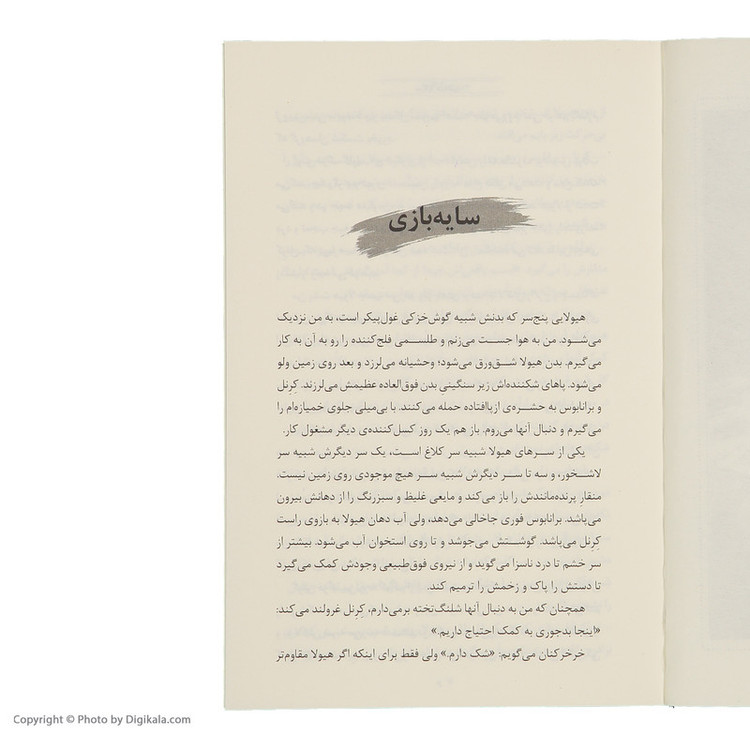 سایه‌بازی
هیولایی پنج‌سر که بدنش شبیه گوش‌خزکی غول‌پیکر است، به من نزدیک
می‌شود. من به هوا جست می‌زنم و طلسمی فلج‌کننده را رو به آن به کار
می‌گیرم. بدن هیولا شق‌ورق می‌شود؛ وحشیانه می‌لرزد و بعد روی زمین ولو
می‌شود. پاهای شکننده‌اش زیر سنگینیِ بدن فوق‌العاده عظیمش می‌لرزند. کِرنل
و برانابوس به حشره‌ی ازپاافتاده حمله می‌کنند. با بی‌میلی جلوی خمیازه‌ام را
می‌گیرم و دنبال آنها می‌روم. باز هم یک روز کسل‌کننده‌ی دیگر مشغول کار.
یکی از سرهای هیولا شبیه سر کلاغ است، یک سر دیگرش شبیه سر
لاشخور، و سه تا سر دیگرش شبیه سر هیچ موجودی روی زمین نیست.
منقارِ پرنده‌مانندش را باز می‌کند و مایعی غلیظ و سبزرنگ را از دهانش بیرون
می‌پاشد. برانابوس فوری جاخالی می‌دهد، ولی آب دهان هیولا به بازوی راست
کِرنل می‌پاشد. گوشتش می‌جوشد و تا روی استخوان آب می‌شود. بیشتر از
سر خشم تا درد ناسزا می‌گوید و از نیروی فوق‌طبیعی وجودش کمک می‌گیرد
تا دستش را پاک و زخمش را ترمیم کند.
همچنان که من به دنبال آنها شلنگ‌تخته برمی‌دارم، کِرنل غرولند می‌کند:
«اینجا بدجوری به کمک احتیاج داریم.»
خرخرکنان می‌گویم: «شک دارم.» ولی فقط برای اینکه اگر هیولا مقاوم‌تر
Copyright © Photo by Digikala.com